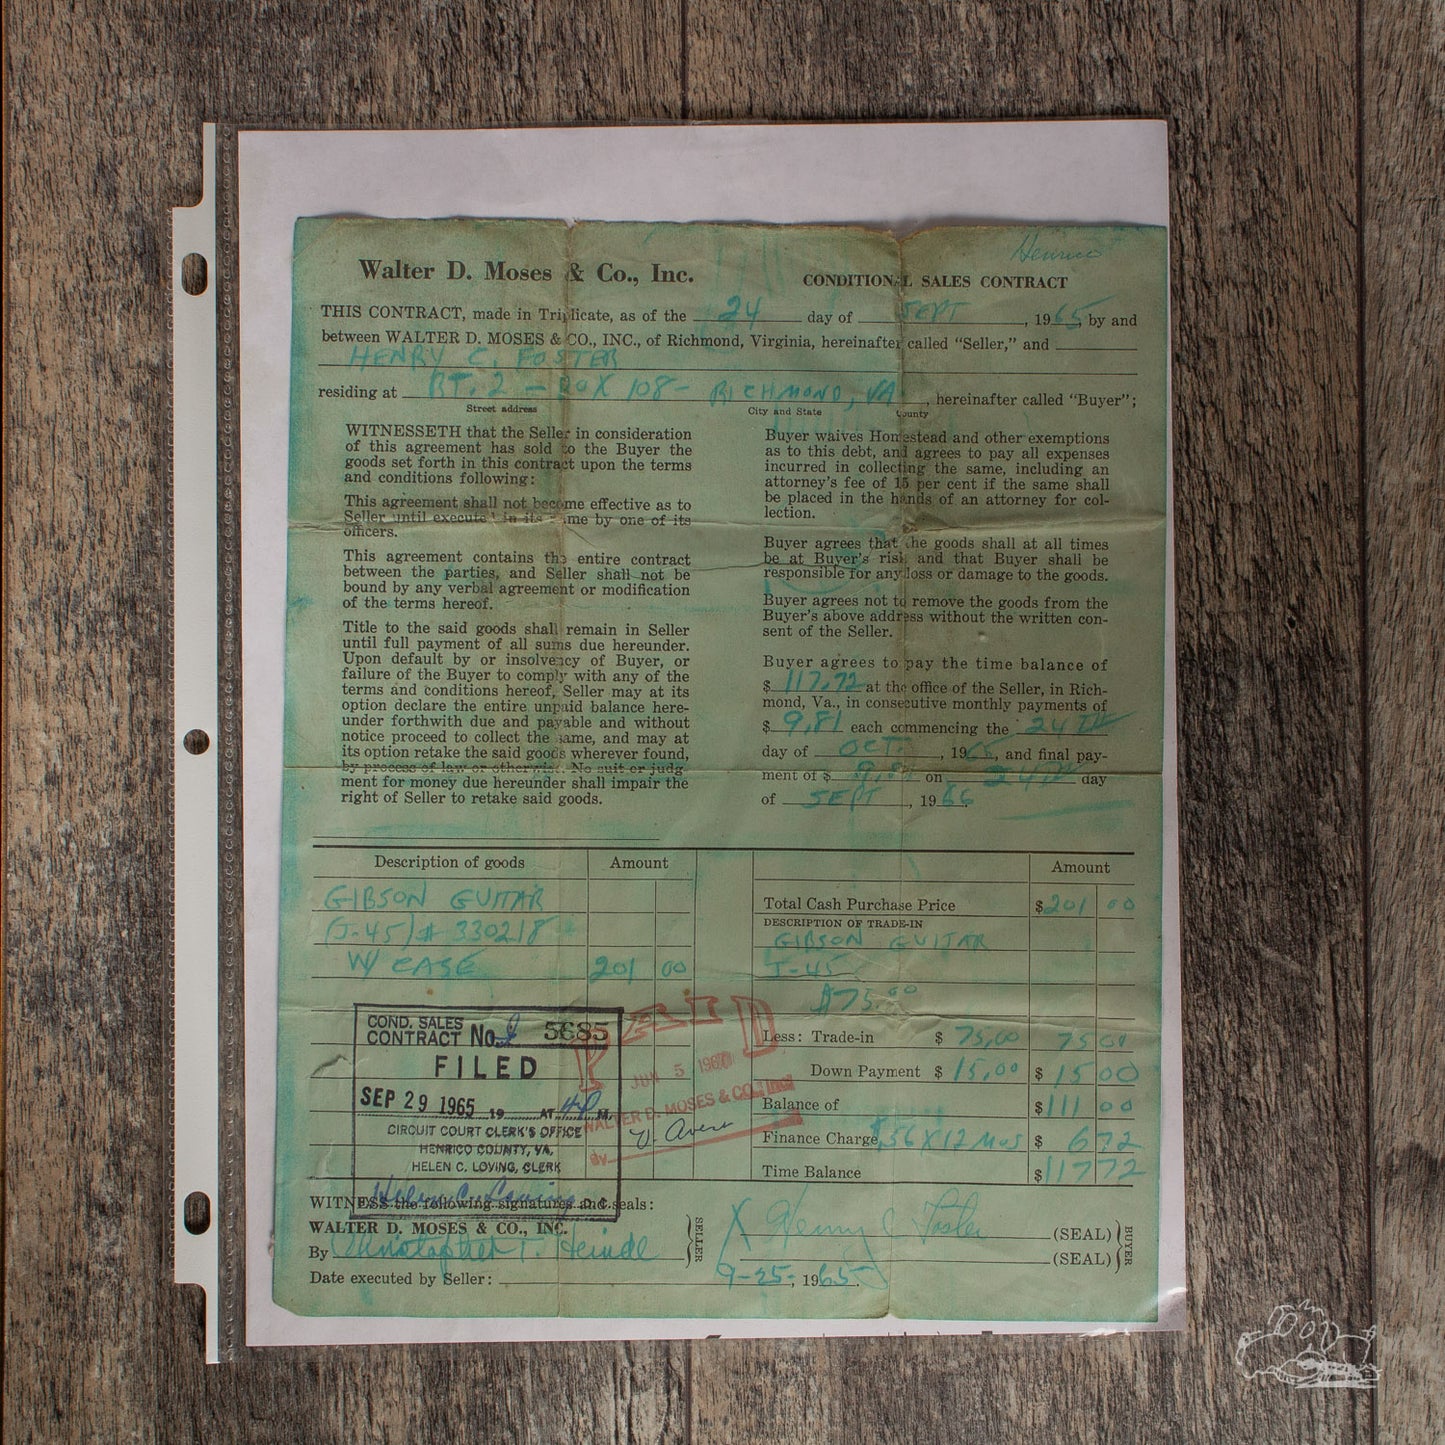 Henrico
Walter D. Moses & Co., Inc.
CONDITIONAL SALES CONTRACT
THIS CONTRACT, made in Triplicate, as of the 24 day of SEPT, 1965, by and
between WALTER D. MOSES & CO., INC., of Richmond, Virginia, hereinafter called "Seller," and
HENRY C. FOSTER
residing at RT. 2 - BOX 108 - RICHMOND, VA, hereinafter called "Buyer";
Street address City and State County
WITNESSETH that the Seller in consideration
of this agreement has sold to the Buyer the
goods set forth in this contract upon the terms
and conditions following:
This agreement shall not become effective as to
Seller until executed in its name by one of its
officers.
This agreement contains the entire contract
between the parties, and Seller shall not be
bound by any verbal agreement or modification
of the terms hereof.
Title to the said goods shall remain in Seller
until full payment of all sums due hereunder.
Upon default by or insolvency of Buyer, or
failure of the Buyer to comply with any of the
terms and conditions hereof, Seller may at its
option declare the entire unpaid balance here-
under forthwith due and payable and without
notice proceed to collect the same, and may at
its option retake the said goods wherever found,
by process of law or otherwise. No suit or judg-
ment for money due hereunder shall impair the
right of Seller to retake said goods.
Buyer waives Homestead and other exemptions
as to this debt, and agrees to pay all expenses
incurred in collecting the same, including an
attorney's fee of 15 per cent if the same shall
be placed in the hands of an attorney for col-
lection.
Buyer agrees that the goods shall at all times
be at Buyer's risk and that Buyer shall be
responsible for any loss or damage to the goods.
Buyer agrees not to remove the goods from the
Buyer's above address without the written con-
sent of the Seller.
Buyer agrees to pay the time balance of
$ 117.72 at the office of the Seller, in Rich-
mond, Va., in consecutive monthly payments of
$ 9.81 each commencing the 24TH
day of OCT., 1965, and final pay-
ment of $ 9.81 on 24TH day
of SEPT, 1966
Description of goods Amount
GIBSON GUITAR
(J-45) # 330218
W/ CASE 201 00
Amount
Total Cash Purchase Price $ 201 00
DESCRIPTION OF TRADE-IN
GIBSON GUITAR
J-45
$75.00
Less: Trade-in $ 75.00 75 00
Down Payment $ 15.00 $ 15 00
Balance of $ 111 00
Finance Charge .56 X 12 MOS $ 6 72
Time Balance $ 117 72
COND. SALES
CONTRACT No. 5685
FILED
SEP 29 1965 19 AT M.
CIRCUIT COURT CLERK'S OFFICE
HENRICO COUNTY, VA.
HELEN C. LOVING, CLERK
Helen C. Loving D.C.
PAID
5
WALTER D. MOSES & CO., INC.
BY
WITNESS the following signatures and seals:
WALTER D. MOSES & CO., INC.
By Christopher T. Heindl
SELLER
X Henry C Foster (SEAL)
(SEAL)
BUYER
Date executed by Seller: 9-25-, 1965.